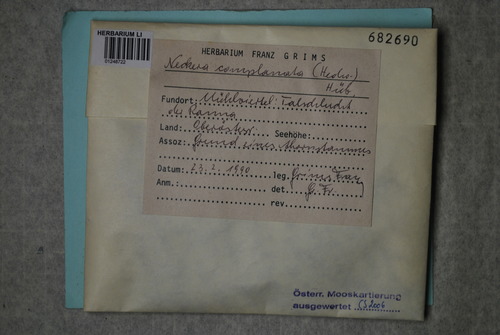 HERBARIUM LI
01248722
682690
HERBARIUM FRANZ GRIMS
Neckera complanata (Hedw.)
Hüb.
Fundort: Mühlviertel: Talschlucht
der Ranna
Land: Oberösterr. Seehöhe:
Assoz: Grund eines Ahornstammes
Datum: 23. 2. 1990 leg. Grims Franz
Anm.: det. G. Fr.
rev.
Österr. Mooskartierung
ausgewertet CS 2006